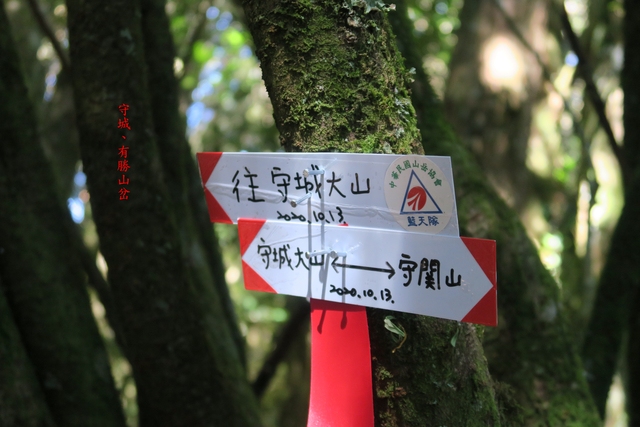 守城、有勝山岔
往守城大山
2020.10.13.
中華民國山岳協會
藍天隊
守城大山←→守關山
2020.10.13.